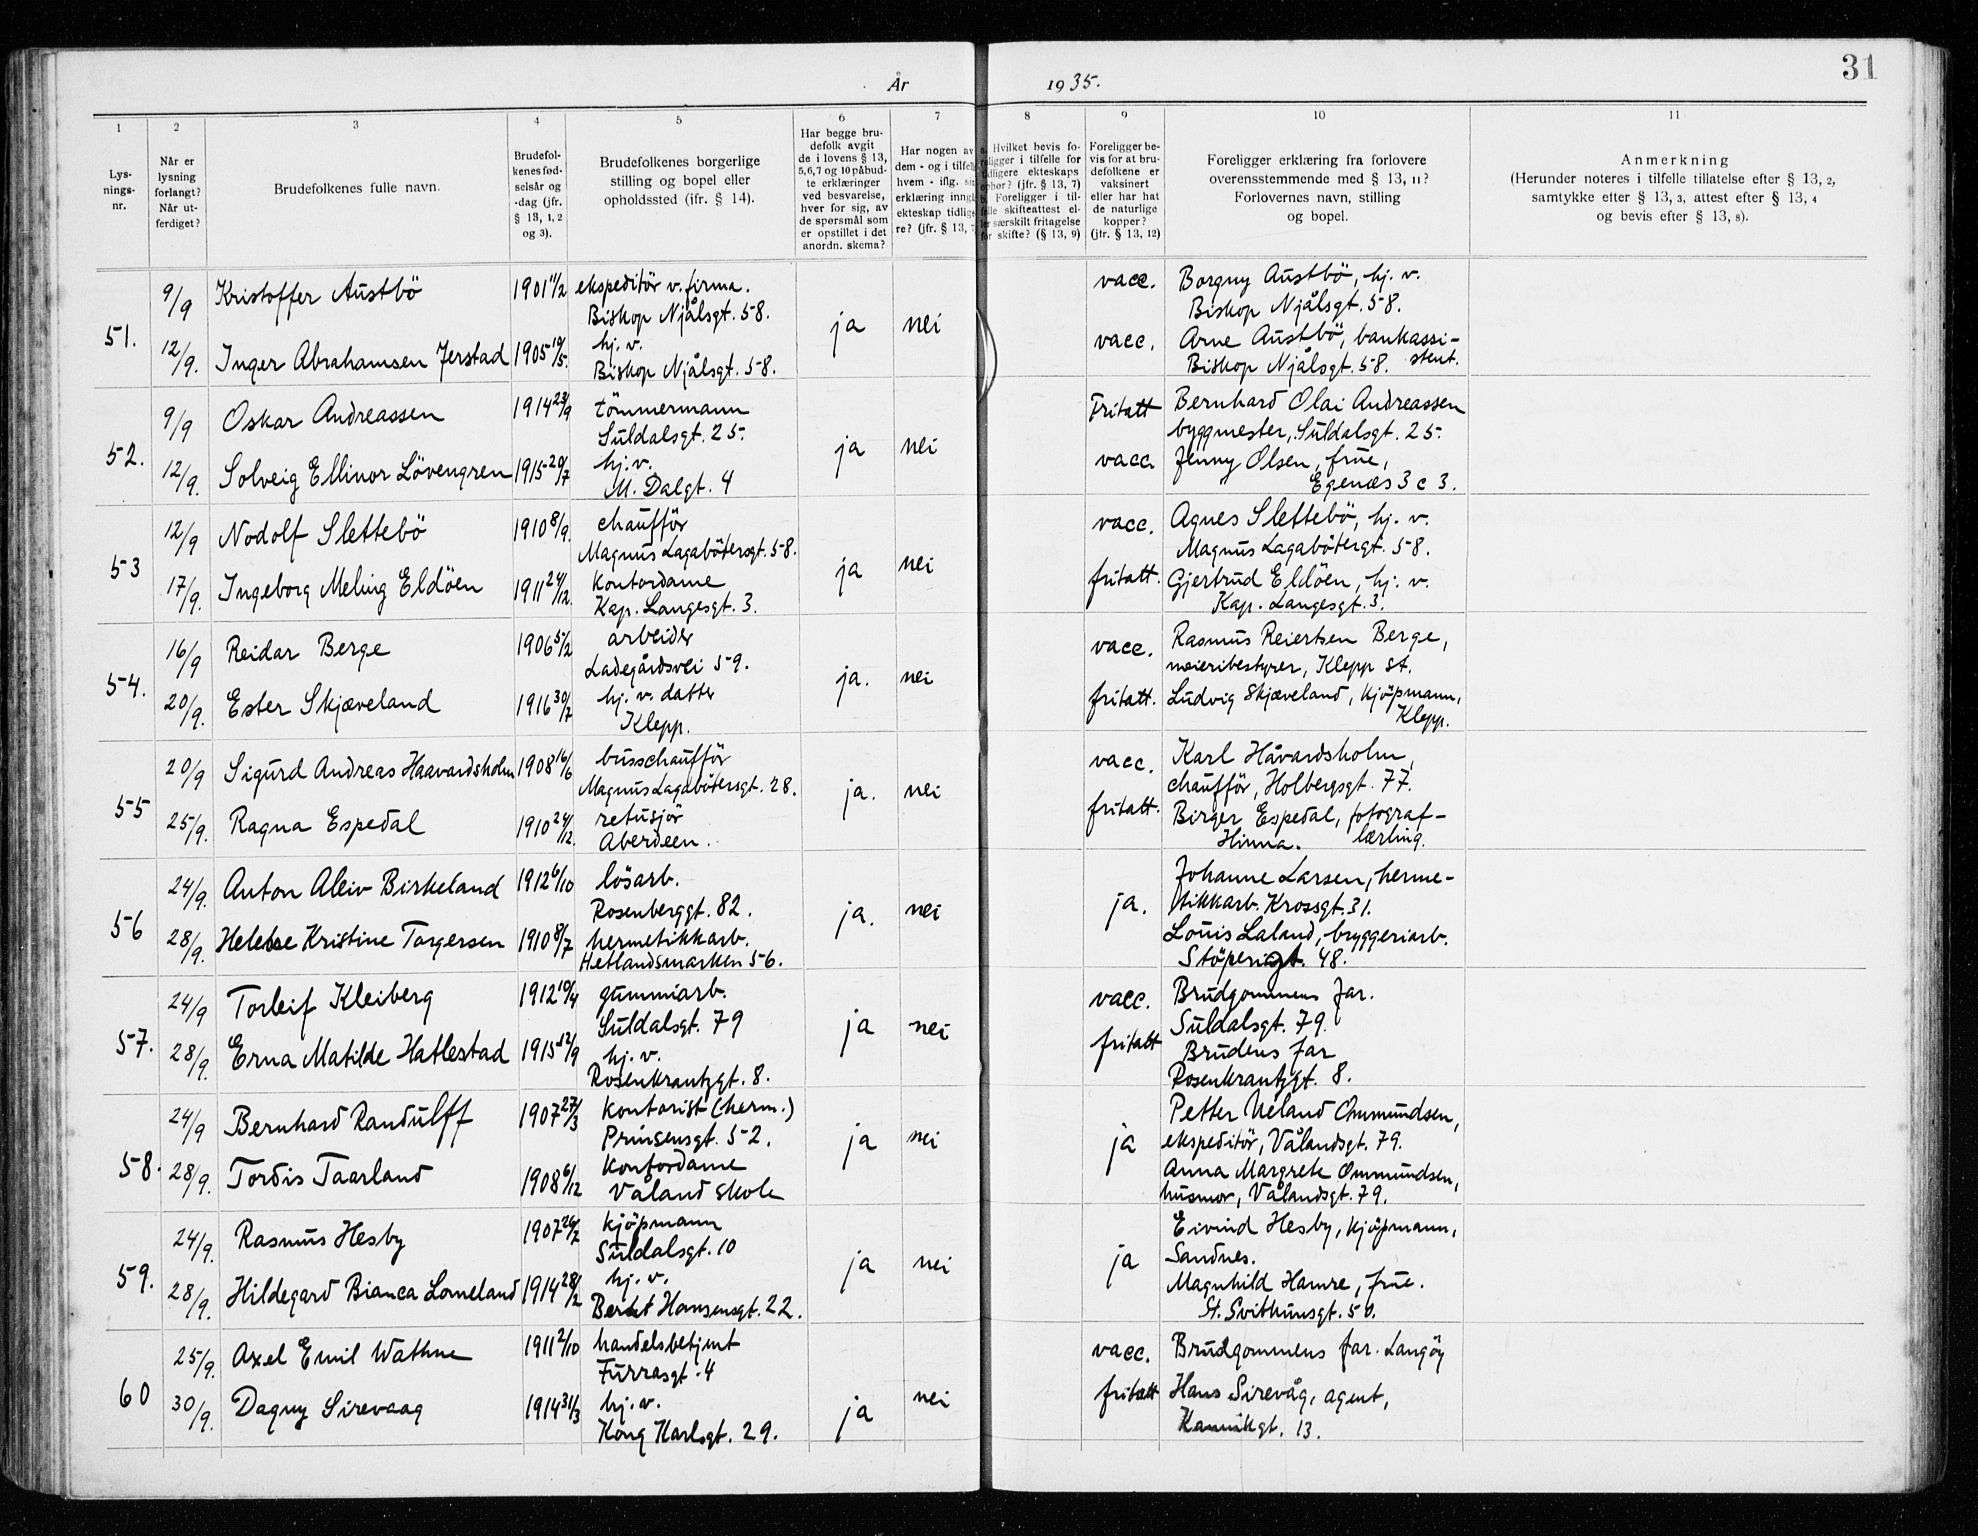 31
År 1935.
1
2
3
4
5
6
7
8
9
10
11
Lys-
nings-
nr.
Når er
lysning
forlangt?
Når ut-
ferdiget?
Brudefolkenes fulle navn.
Brudefol-
kenes fød-
selsår og
-dag (jfr.
§ 13, 1, 2
og 3).
Brudefolkenes borgerlige
stilling og bopel eller
opholdssted (ifr. § 14).
Har begge bru-
defolk avgit
de i lovens § 13,
5, 6, 7 og 10 påbud-
te erklæringer
ved besvarelse,
hver for sig, av
de spørsmål som
er opstillet i det
anordn. skema?
Har nogen av
dem - og i tilfelle
hvem - iflg. sin
erklæring inngå
ekteskap tidlige-
re? (jfr. § 13,
Hvilket bevis fo-
religger i tilfelle for
tidligere ekteskaps
ophør? (jfr. § 13, 7)
b. Foreligger i til-
felle skifteattest el-
ler særskilt fritagelse
for skifte? (§ 13, 9)
Foreligger be-
vis for at bru-
defolkene er
vaksinert
eller har hat
de naturlige
kopper?
(jfr. § 13, 12)
Foreligger erklæring fra forlovere
overensstemmende med § 13, 11?
Forlovernes navn, stilling
og bopel.
Anmerkning
(Herunder noteres i tilfelle tillatelse efter § 13, 2,
samtykke efter § 13, 3, attest efter § 13, 4
og bevis efter § 13, 8).
51.
9/9 Kristoffer Austbö 1901 11/2 ekspeditör v. firma. vacc. Borgny Austbö, hj. v.
Biskop Njålsgt. 58. ja nei Biskop Njålsgt. 58.
12/9. Inger Abrahamsen Jerstad 1905 10/5. hj. v. vacc. Arne Austbö, bankassi-
Biskop Njålsgt. 58. Biskop Njålsgt. 58. stent.
52.
9/9 Oskar Andreassen 1914 23/9 tömmermann Fritatt Bernhard Olai Andreassen
Suldalsgt. 25. ja nei byggmester, Suldalsgt. 25.
12/9. Solveig Ellinor Lövengren 1915 20/7 hj. v. vacc Jenny Olsen, frue,
M. Dalgt. 4 Egenæs 3 c 3.
53
12/9 Nodolf Slettebö 1910 8/9. chaufför vacc. Agnes Slettebö, hj. v.
Magnus Lagabötersgt. 58. ja nei Magnus Lagabötergt. 58.
17/9. Ingeborg Meling Eldöen 1911 24/12. Kontordame fritatt. Gjertrud Eldöen, hj. v.
Kap. Langesgt. 3. Kap. Langesgt. 3.
54.
16/9 Reidar Berge 1906 5/2 arbeider vacc. Rasmus Reiertsen Berge,
Ladegårdsvei 59. ja. nei meieribestyrer, Klepp st.
20/9. Ester Skjæveland 1916 30/7 hj. v. datter fritatt. Ludvig Skjæveland, kjöpmann,
Klepp. Klepp.
55
20/9 Sigurd Andreas Haavardsholm 1908 16/6 busschaufför vacc. Karl Håvardsholm,
Magnus Lagabötersgt. 28. ja. nei chaufför, Holbergsgt. 77.
25/9. Ragna Espedal 1910 24/12. retusjör fritatt. Birger Espedal, fotograf-
Aberdeen. Hinna. lærling.
56
24/9. Anton Aleiv Birkeland 1912 6/10 lösarb. Johanne Larsen, herme-
Rosenberggt. 82. ja. nei ja. tikkarb. Krossgt. 31.
28/9. Kristine Torgersen 1910 8/7 hermetikkarb. Louis Laland, bryggeriarb.
Hetlandsmarken 56. Stöperigt. 48.
57.
24/9 Torleif Kleiberg 1912 10/4 gummiarb. vacc. Brudgommens far.
Suldalsgt. 79 ja nei Suldalsgt. 79.
28/9. Erna Matilde Hatlestad 1915 12/9 hj. v. fritatt Brudens far
Rosenkrantzgt. 8. Rosenkrantzgt. 8.
58.
24/9 Bernhard Randulff 1907 27/3 Kontorist (herm.) Petter Ueland Ommundsen,
Prinsensgt. 52. ja nei ja ekspeditör, Vålandsgt. 79.
28/9. Tordis Taarland 1908 6/12 Kontordame Anna Margrete Ommundsen,
Våland skole husmor, Vålandsgt. 79.
59.
24/9. Rasmus Hesby 1907 26/2 kjöpmann Eivind Hesby, kjöpmann,
Suldalsgt. 10 ja nei ja Sandnes.
28/9. Hildegard Bianca Lomeland 1914 28/2 hj. v. Magnhild Hamre, frue.
Hansensgt. 22. St. Svithunsgt. 50.
60
25/9. Axel Emil Wathne 1911 2/10 handelsbetjent vacc. Brudgommens far. Langöy
Furrasgt. 4
30/9. Dagny Sirevaag 1914 31/3 hj. v. ja nei fritatt Hans Sirevåg, agent,
Kong Karlsgt. 29. Kannikgt. 13.